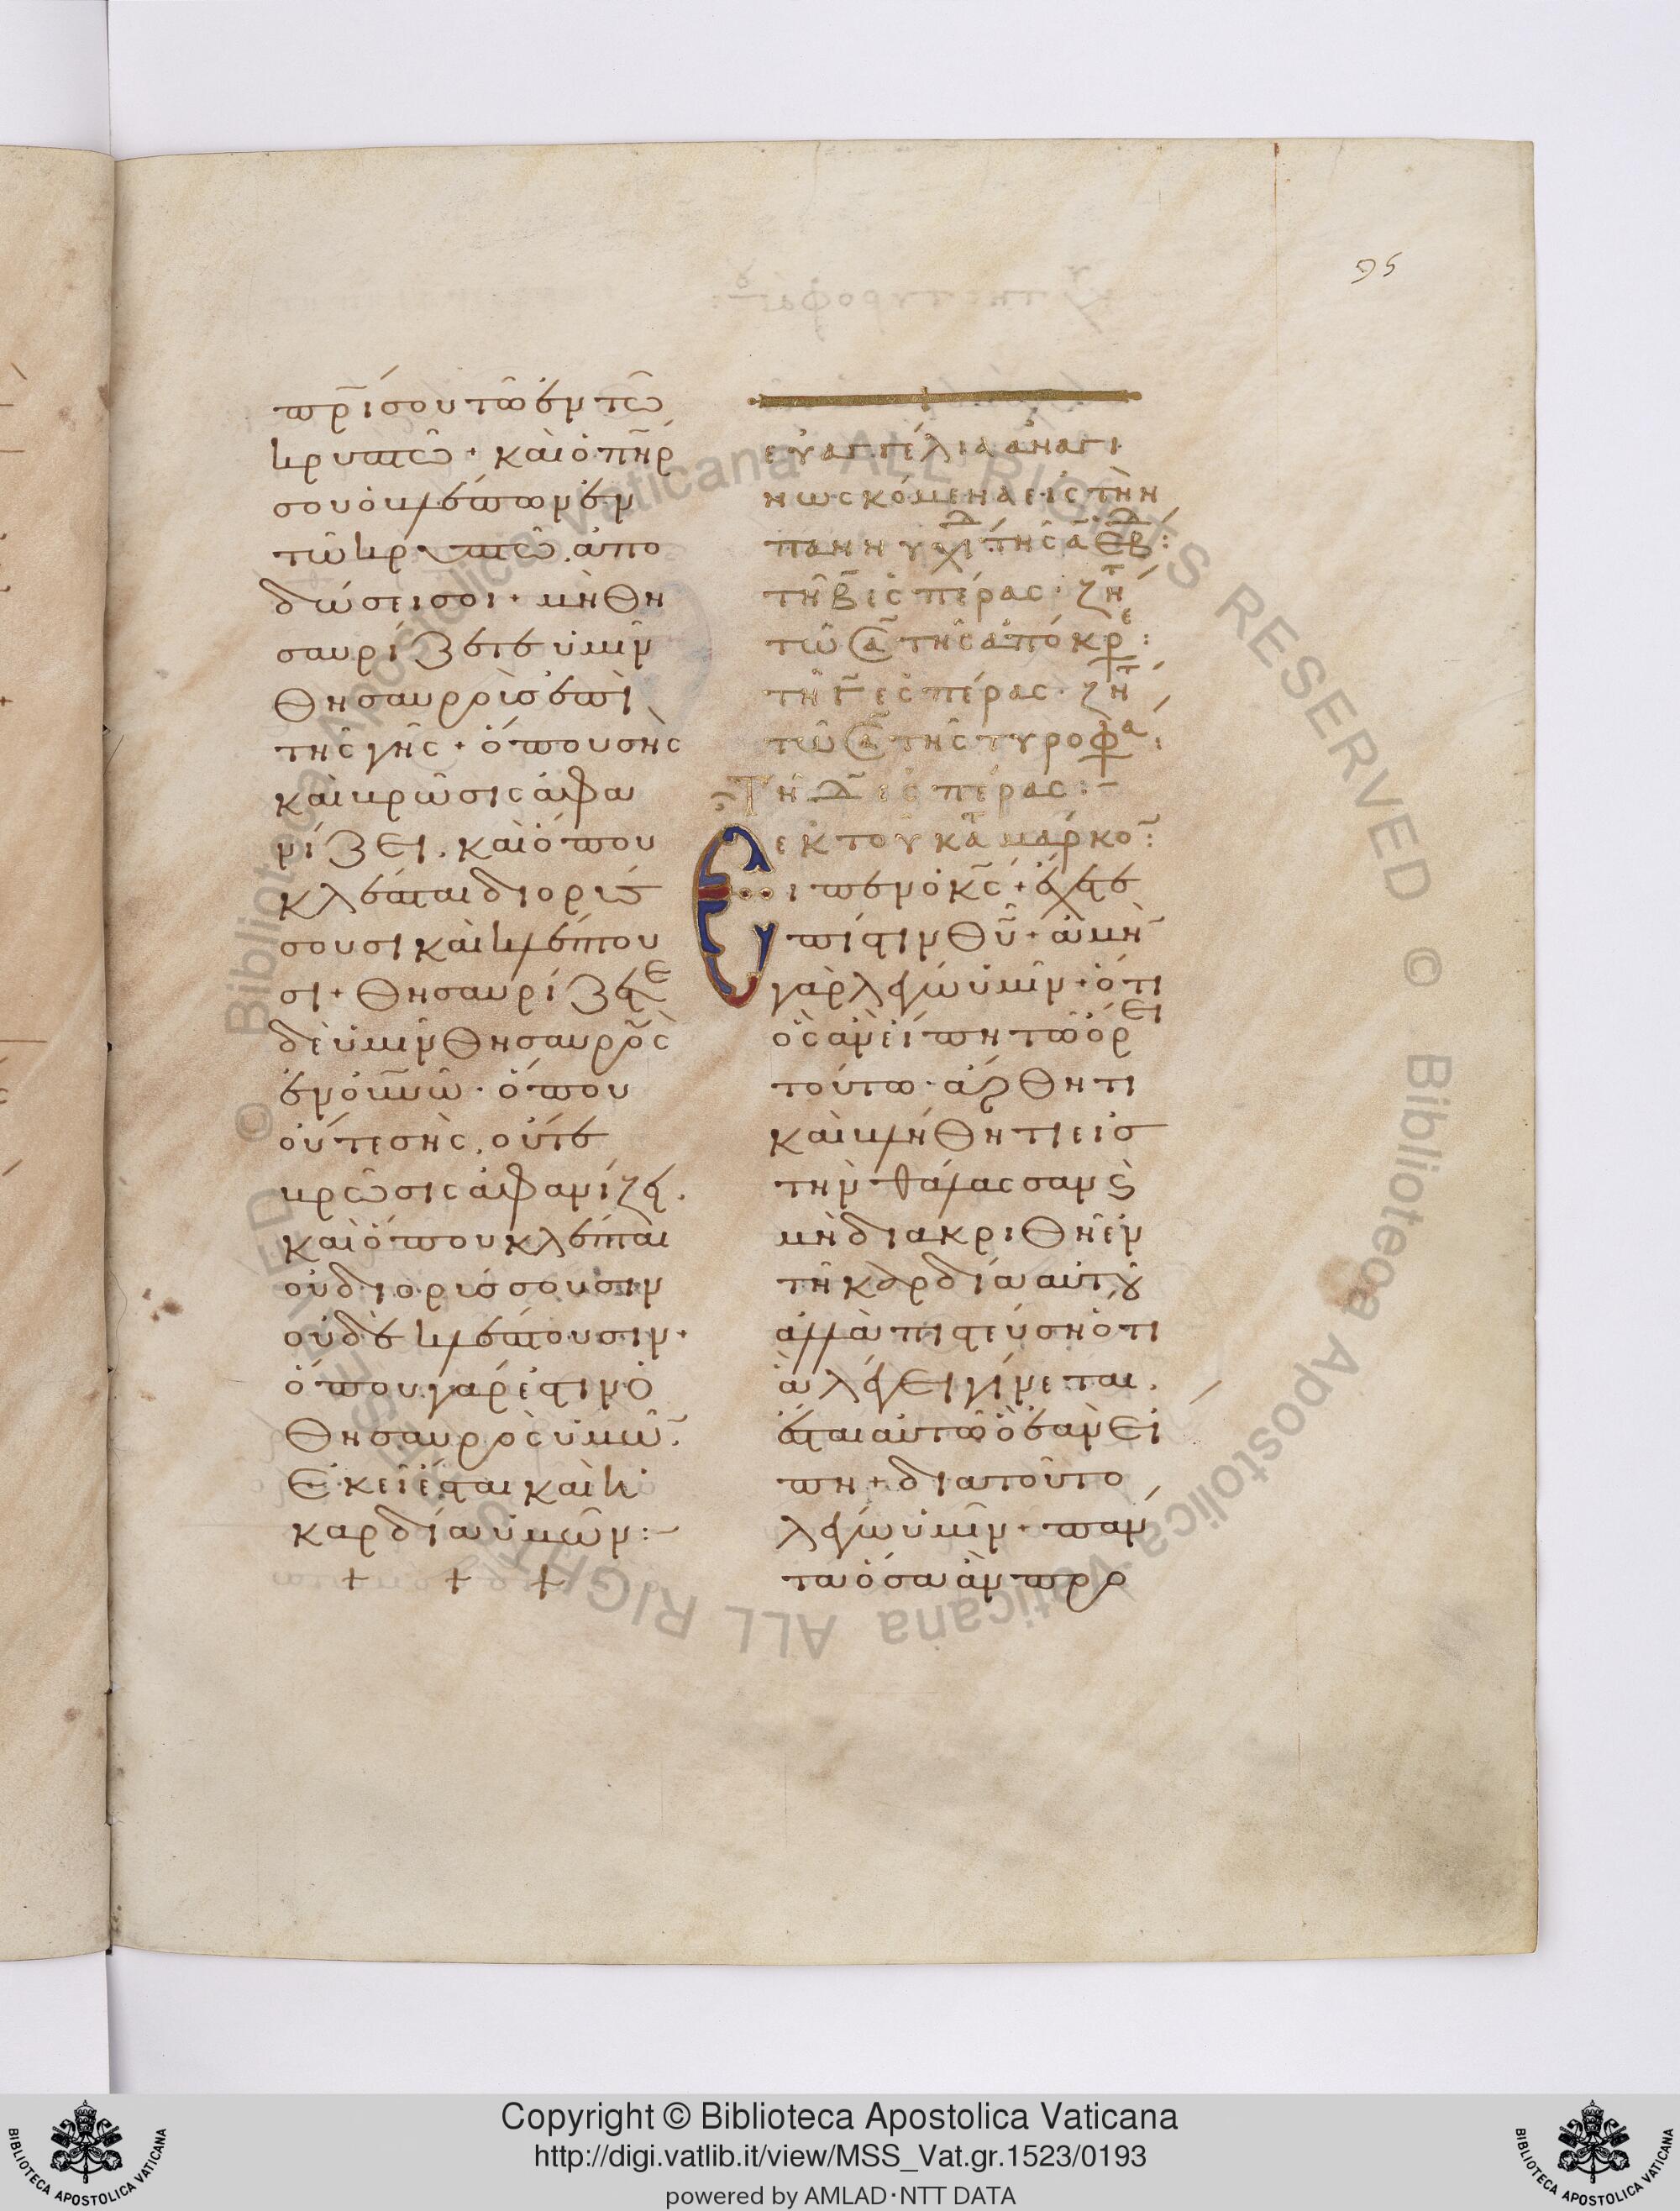 95
πρ̅ί σου τῶ ἐν τῶ
κρυπτῶ + καὶ ὁ πη̅ρ
σου ὁ βλέπων ἐν
τῶ κρυπτῶ. ἀπο
δώσει σοι + μὴ θη
σαυρίζετε ὑμῖν
θησαυροὺς ἐπὶ
τῆς γῆς + ὅπου σὴς
καὶ βρῶσις ἀφα
νίζει. καὶ ὅπου
κλέπται διορύσ
σουσι καὶ κλέπτου
σι + θησαυρίζετε
δὲ ὑμῖν θησαυροὺς
ἐν οὐ̅νω̅ · ὅπου
οὔτε σὴς. οὔτε
βρῶσις ἀφανίζει.
καὶ ὅπου κλέπται
οὐ διορύσσουσιν
οὐδὲ κλέπτουσιν +
ὅπου γάρ ἐστιν ὁ
θησαυρὸς ὑμῶ̅.
Ἐκεῖ ἔσται καὶ ἡ
καρδία ὑμῶν :–
+ + +
εὐαγγέλια ἀναγι
νωσκόμενα εἰς τὴν
τῆ Β̅ ἑσπέρας · ζη̅τ
τῶ σα̅ τῆς ἀπόκρε :
τῆ Γ̅ ἑσπέρας · ζη̅τ
τῶ σα̅ τῆς τυροφα :
Τῆ Δ̅ ἑσπέρας :–
ἐκ τοῦ κα̅τ μάρκο̅ :
Εἶπεν ὁ κ̅ς + ἔχετε
πίστιν θ̅υ + ἀμὴ̅
γὰρ λέγω ὑμῖν + ὅτι
ὃς ἂν εἴπη τῶ ὄρει
τούτω · ἄρθητι
καὶ βλήθητι εἰσ
τὴν θάλασσαν ϛ̀
μὴ διακριθῆ ἐν
τῆ καρδία αὐτοῦ
ἀλλὰ πιστεύση ὅτι
ἃ λέγει γίνεται.
ἔσται αὐτῶ ὃ ἐὰν εἴ
πη + διατοῦτο
λέγω ὑμῖν + πάν
τα ὅσα ἂν προ
Copyright © Biblioteca Apostolica Vaticana
http://digi.vatlib.it/view/MSS_Vat.gr.1523/0193
powered by AMLAD·NTT DATA
BIBLIOTECA APOSTOLICA VATICANA
BIBLIOTECA APOSTOLICA VATICANA
© Biblioteca Apostolica Vaticana ALL RIGHTS RESERVED © Biblioteca Apostolica Vaticana ALL RIGHTS RESERVED